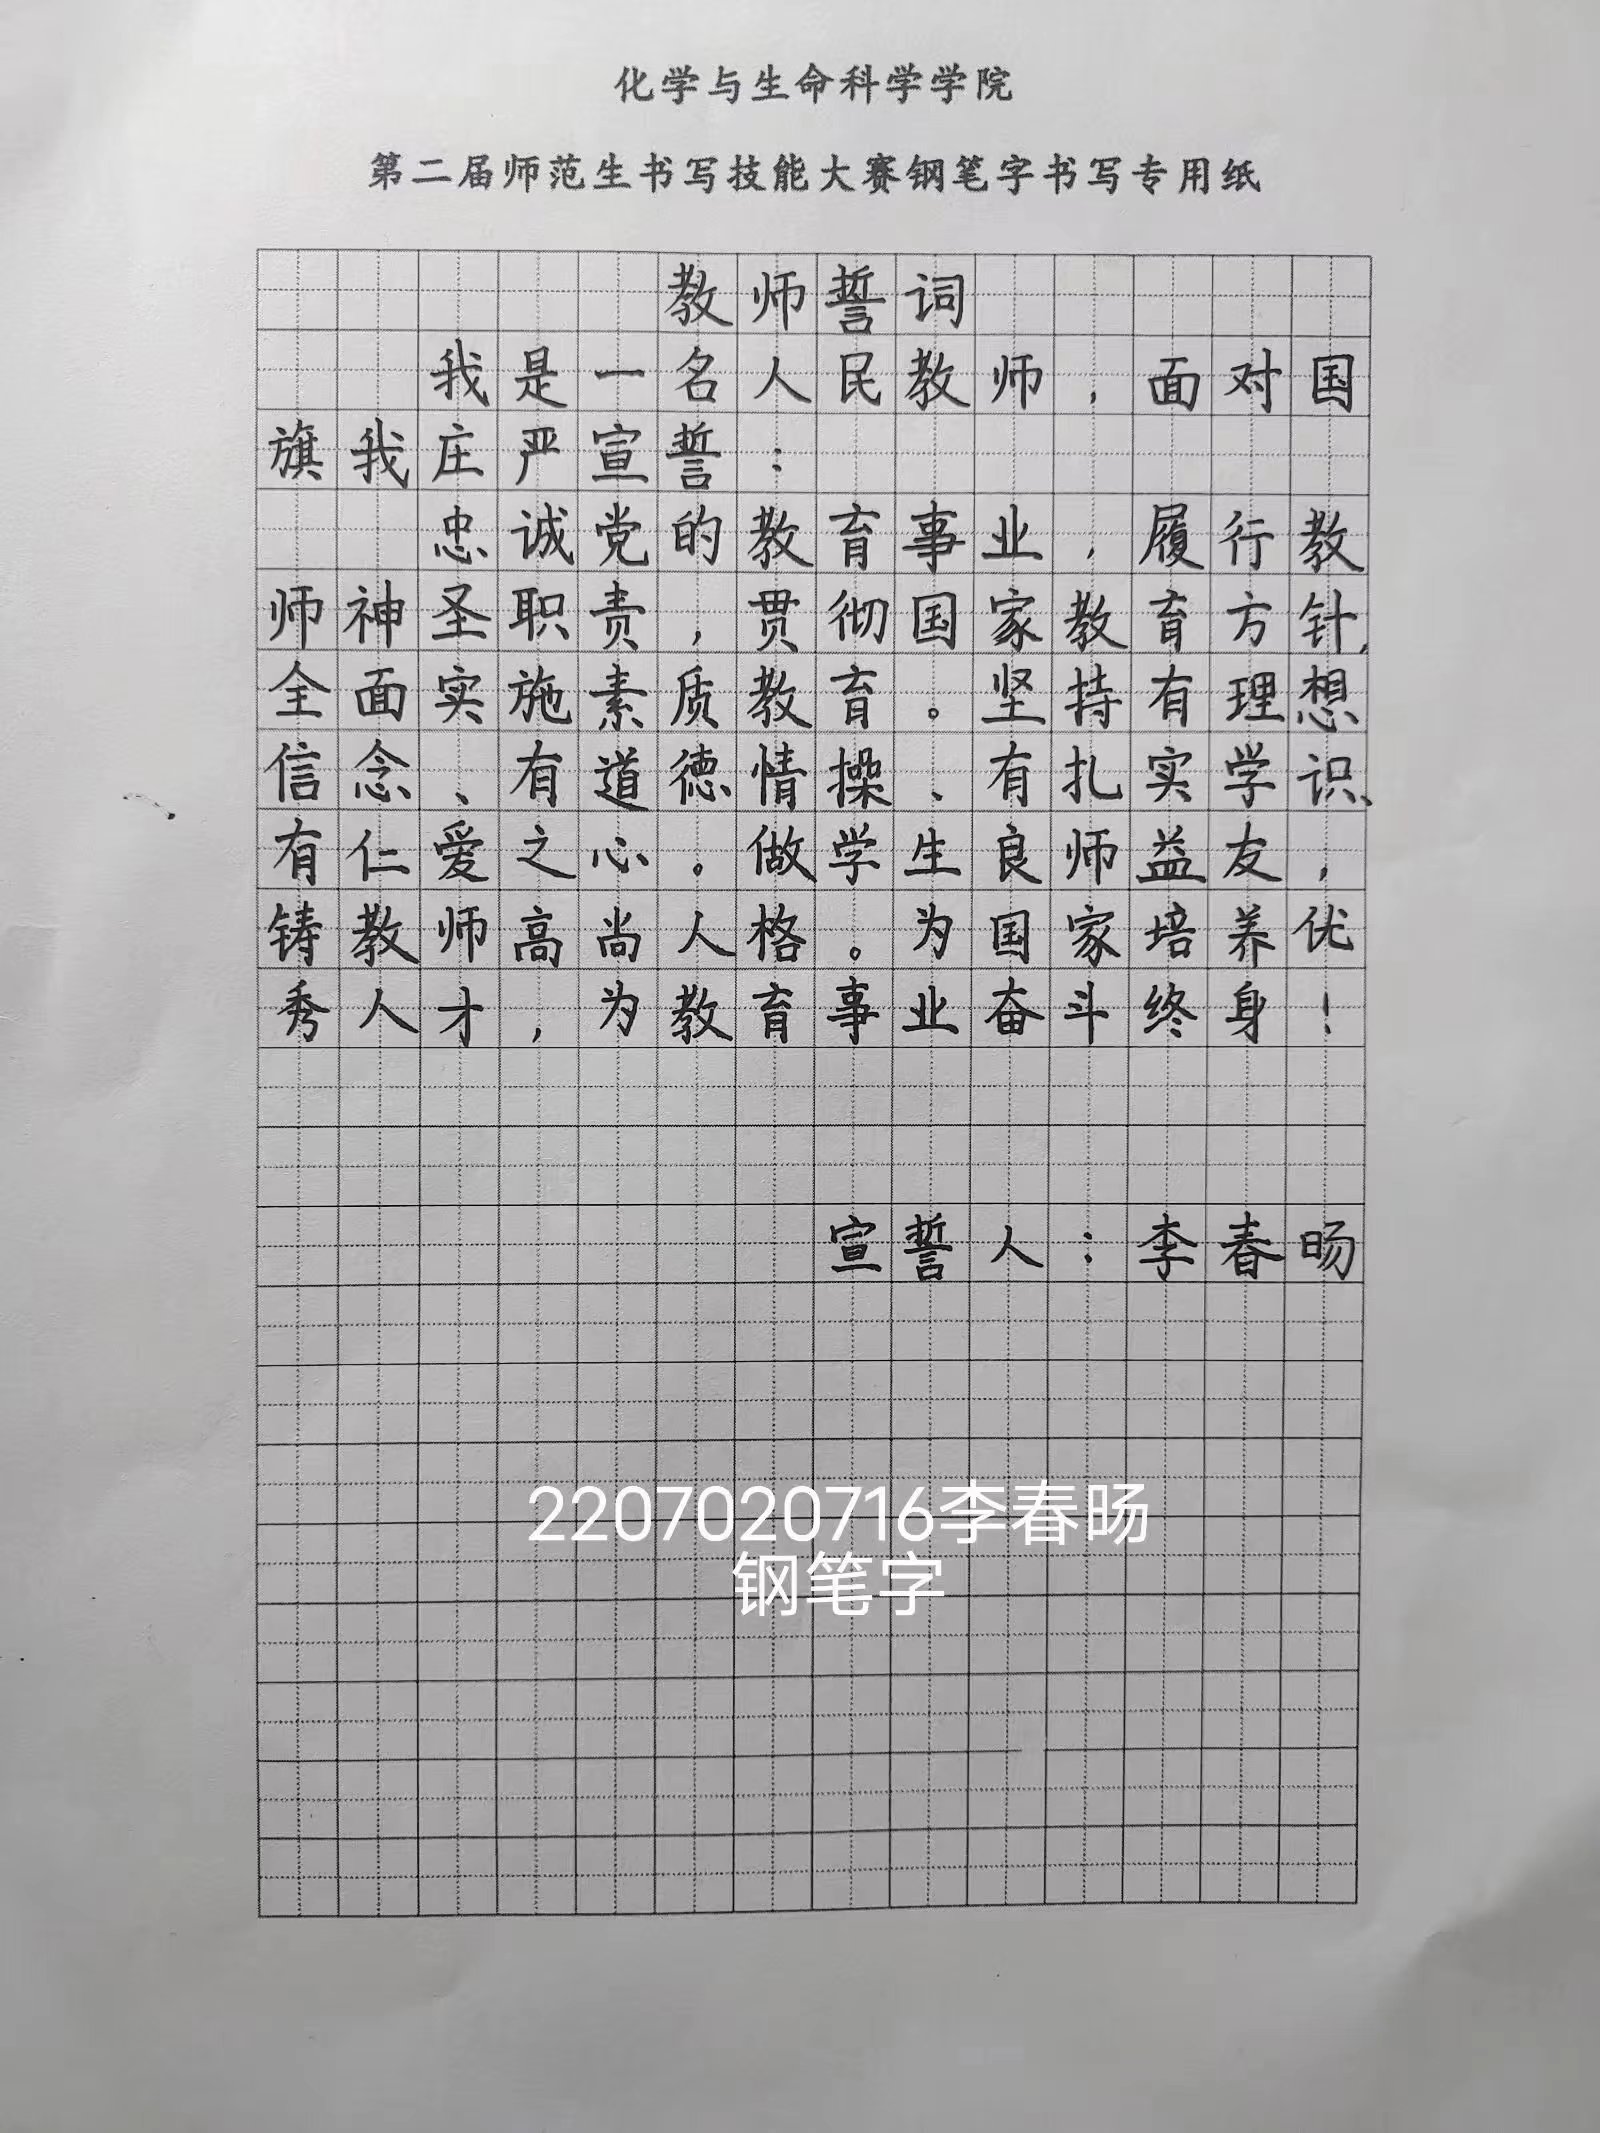 化学与生命科学学院
第二届师范生书写技能大赛钢笔字书写专用纸
教师誓词
我是一名人民教师，面对国
旗我庄严宣誓：
忠诚党的教育事业，履行教
师神圣职责，贯彻国家教育方针，
全面实施素质教育。坚持有理想
信念、有道德情操、有扎实学识、
有仁爱之心。做学生良师益友，
铸教师高尚人格。为国家培养优
秀人才，为教育事业奋斗终身！
宣誓人：李春旸
2207020716李春旸
钢笔字